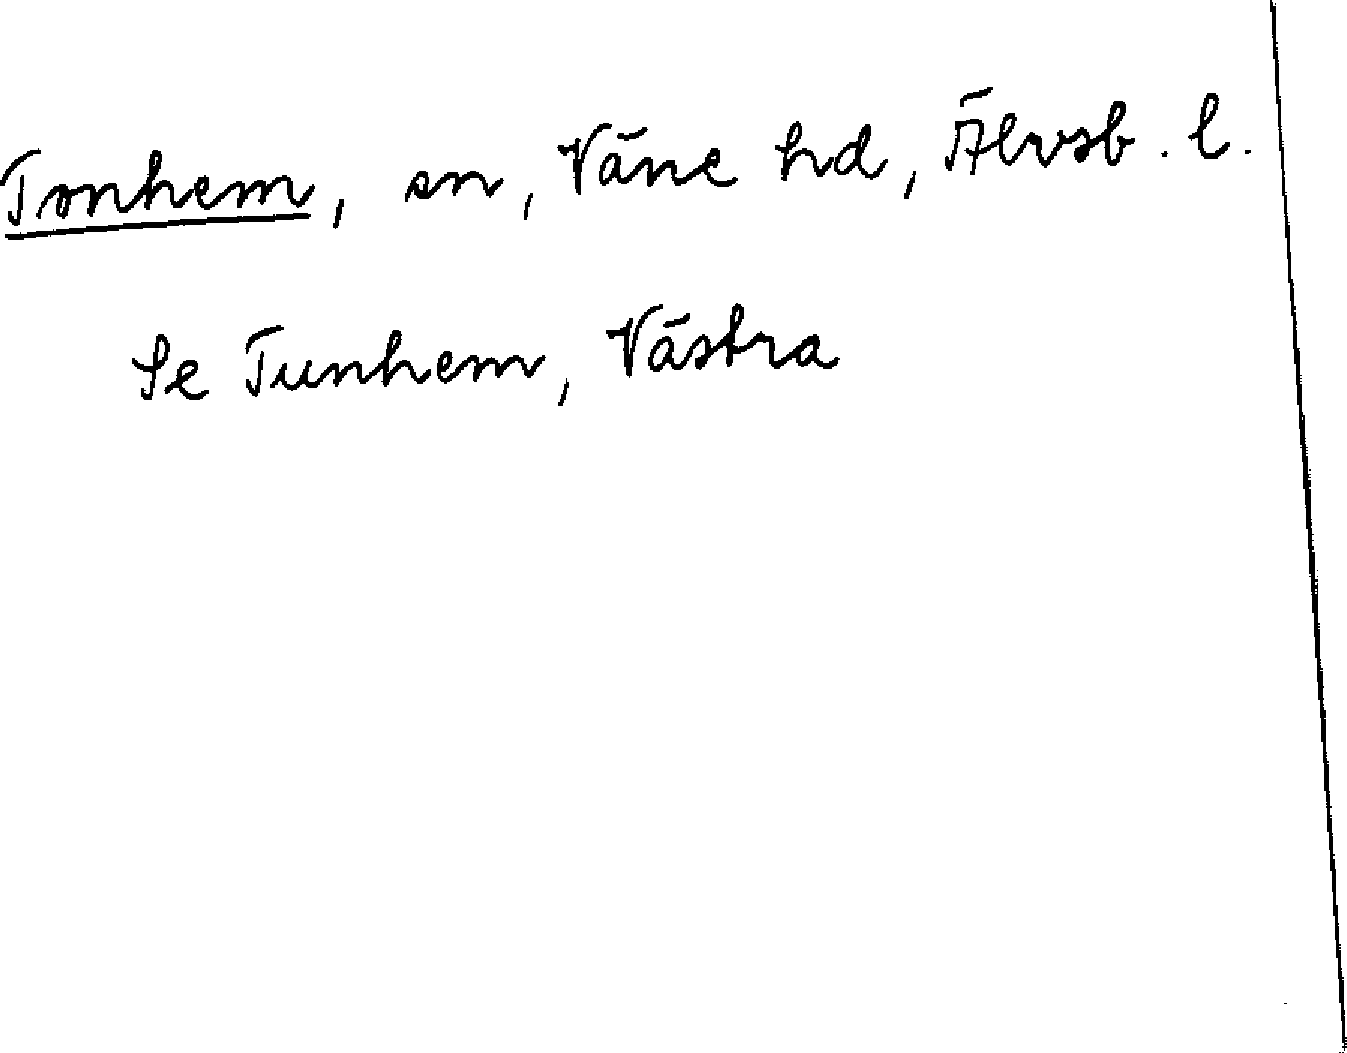 Tronhem, sn, Väne hd, Älvsb. l.
Se Tunhem, Västra